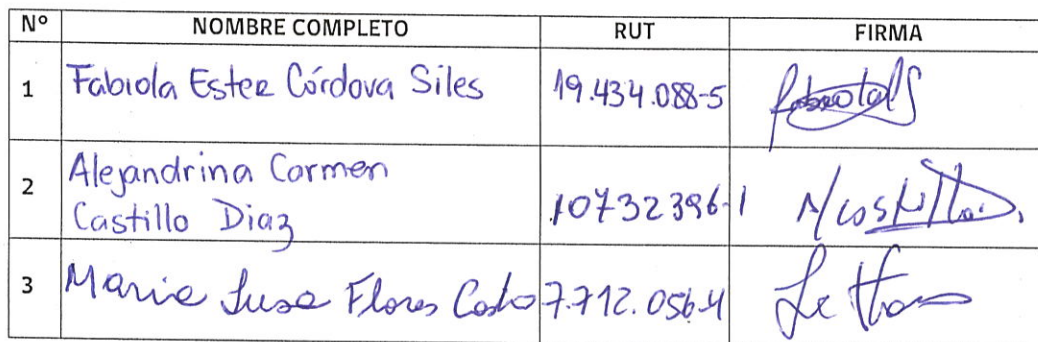 N° NOMBRE COMPLETO RUT FIRMA
1 Fabiola Ester Córdova Siles 19.434.088-5
2 Alejandrina Carmen
Castillo Diaz 10732396-1
3 Maria Luisa Flores 7.712.056-4